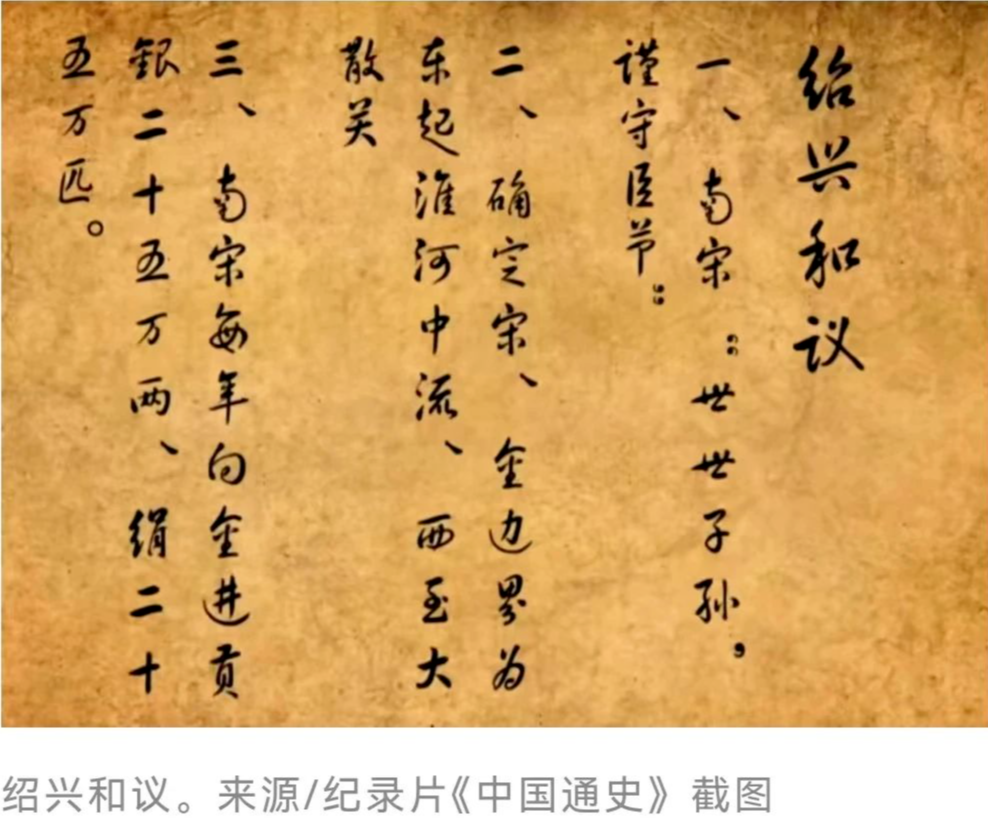 绍兴和议
一、南宋：世世子孙，
谨守臣节：
二、确定宋、金边界为
东起淮河中流、西至大
散关
三、南宋每年向金进贡
銀二十五万两、绢二十
五万匹。
绍兴和议。来源/纪录片《中国通史》截图